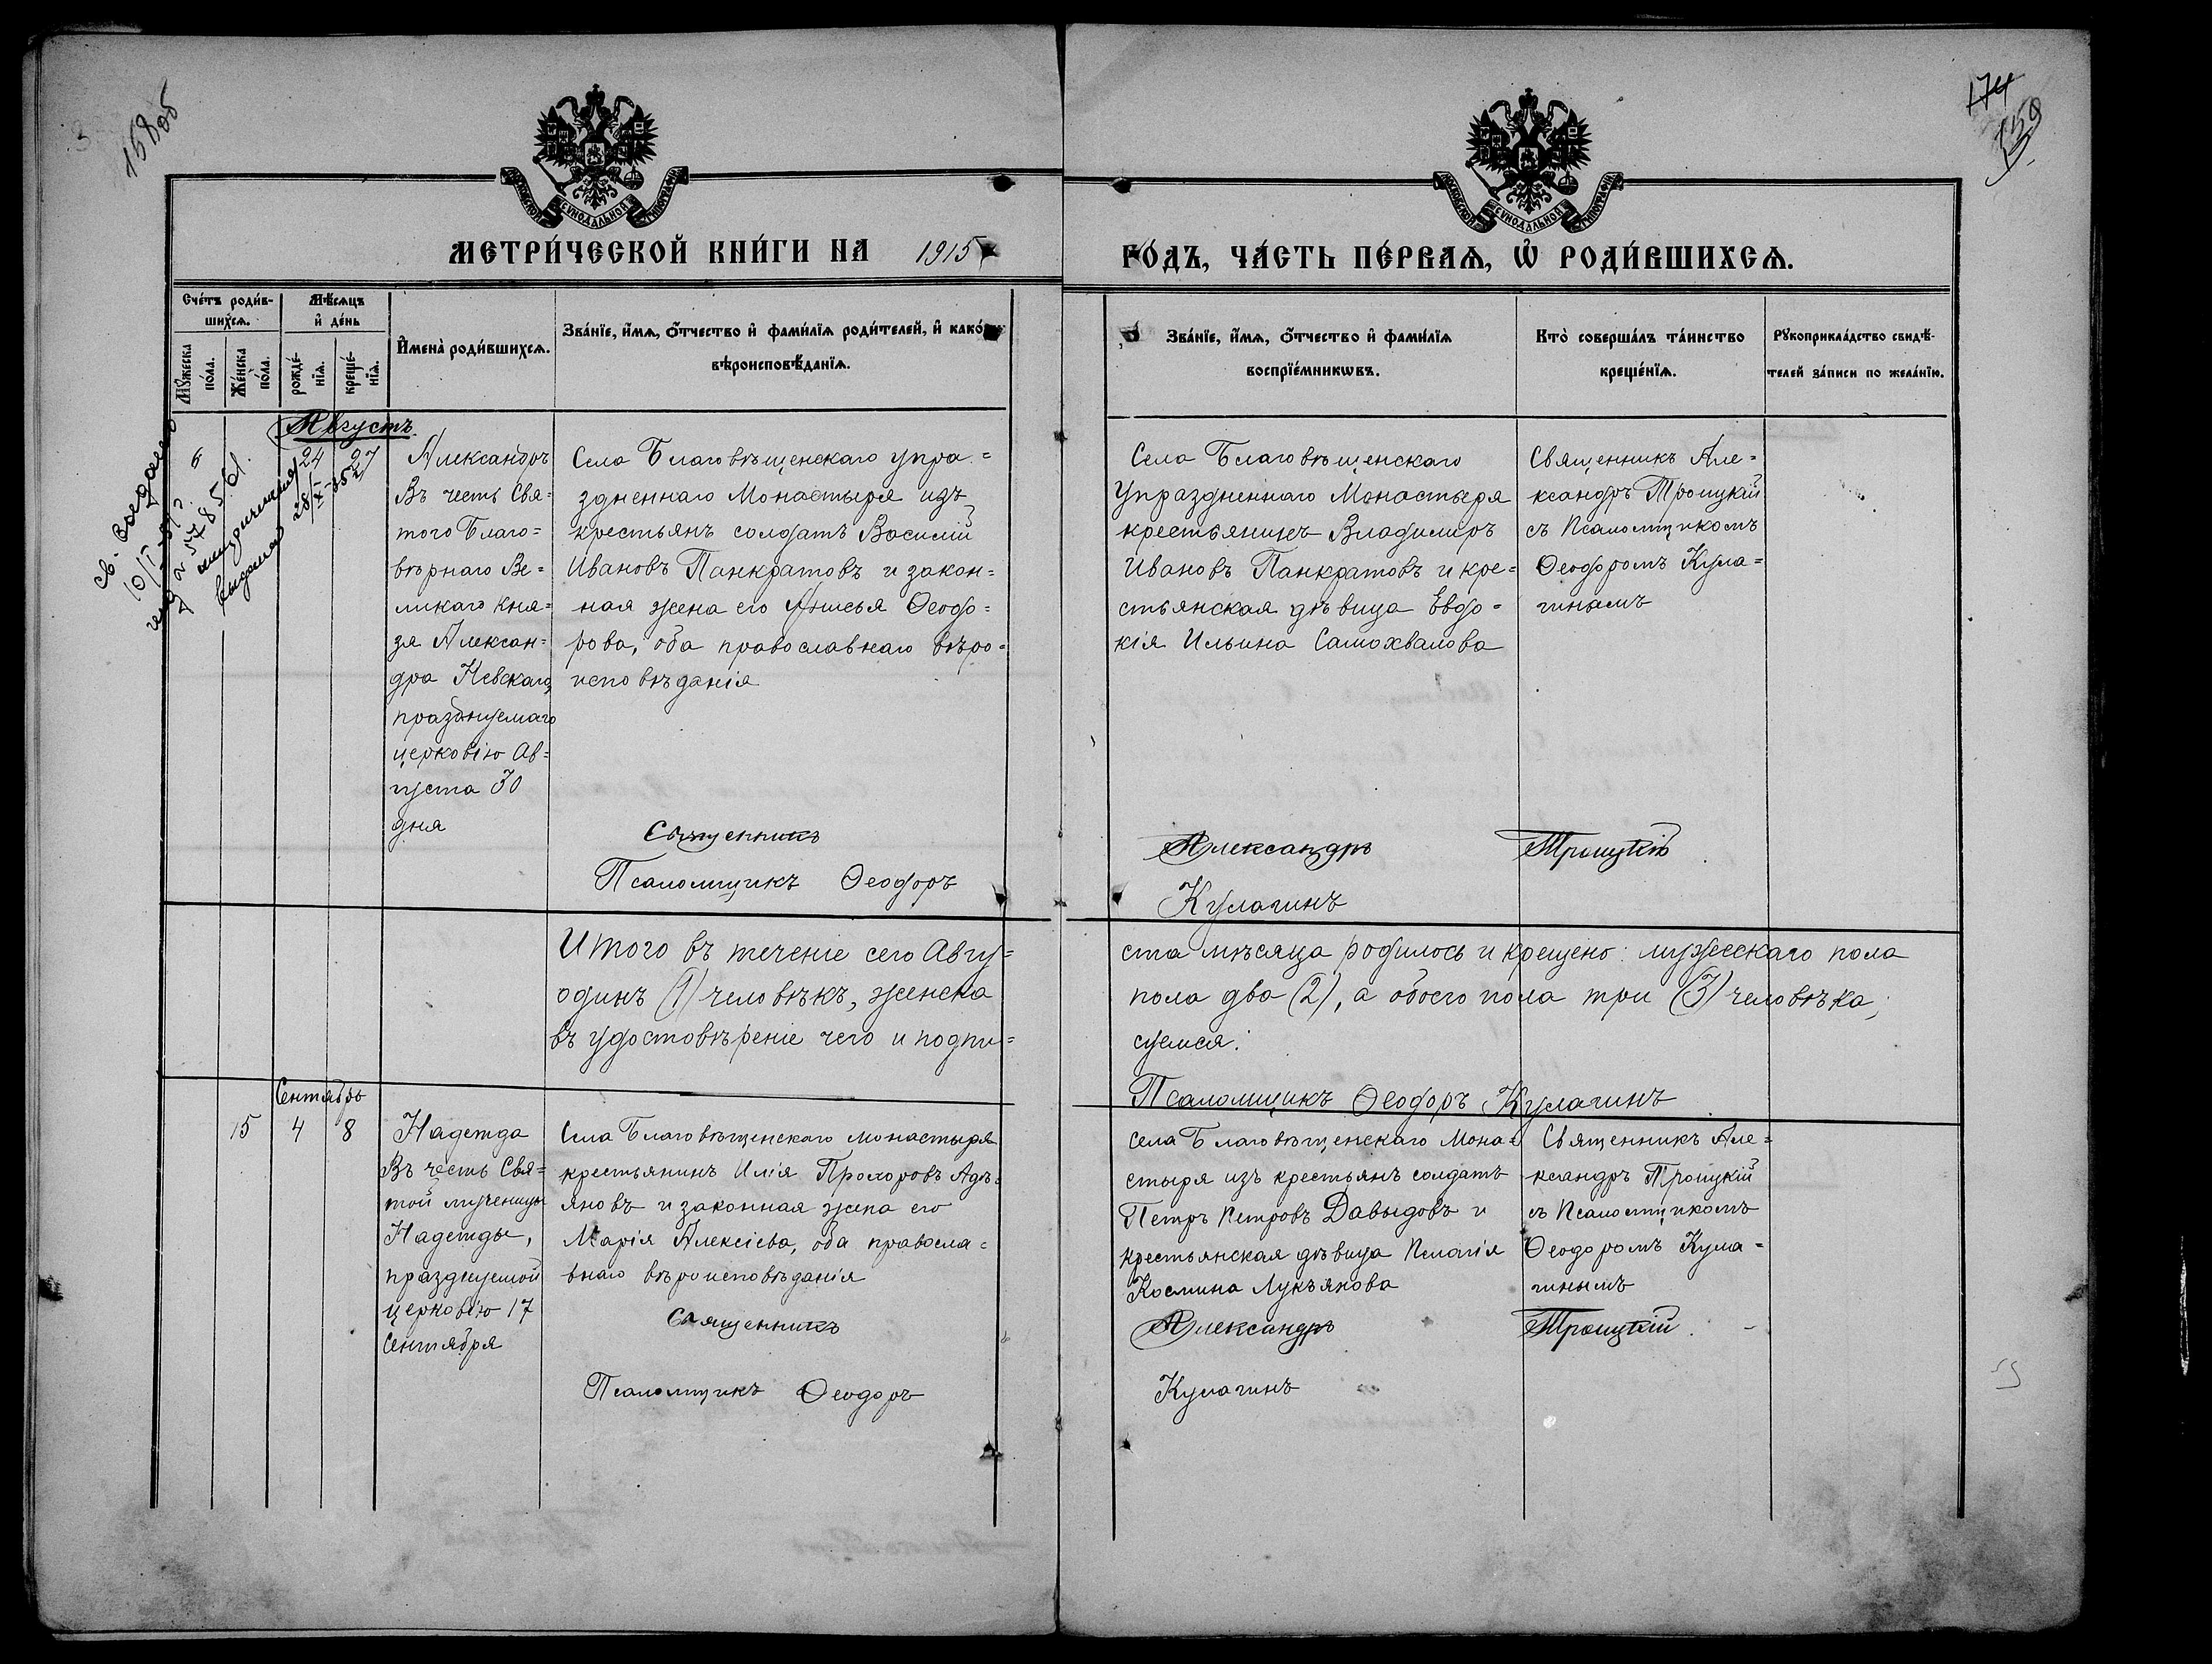 158об
174
159
МОСКОВСКОЙ СѴНОДАЛЬНОЙ ТИПОГРАФІИ
МОСКОВСКОЙ СѴНОДАЛЬНОЙ ТИПОГРАФІИ
МЕТРИ́ЧЕСКОЙ КНИ́ГИ НА 1915
ГО́ДЪ, ЧА́СТЬ ПЕ́РВАѦ, Ѡ҆ РОДИ́ВШИХСѦ.
Сче́тъ роди́в-
шихсѧ.
Мѣ́сѧцъ
и҆ де́нь
Мꙋ́жеска
по́ла.
Же́нска
по́ла.
рожде́-
нїѧ.
креще́-
нїѧ.
И҆мена̀ роди́вшихсѧ.
Зва́нїе, и҆́мѧ, ѻ҆́тчество и҆ фами́лїѧ роди́телей, и҆ како́
вѣроисповѣ́данїѧ.
Зва́нїе, и҆́мѧ, ѻ҆́тчество и҆ фами́лїѧ
воспрїе́мникѡвъ.
Кто̀ соверша́лъ та́инство
креще́нїѧ.
Рꙋкоприкла́дство свидѣ́-
телей за́писи по жела́нїю.
Августъ.
6
24
27
Александръ
Въ честь Свя-
того Благо-
вѣрнаго Ве-
ликаго Кня-
зя Алексан-
дра Невскаго,
празднуемаго
церковію Ав-
густа 30
дня
Села Благовѣщенскаго упра-
здненнаго Монастыря изъ
крестьянъ солдатъ Василій
Ивановъ Панкратовъ и закон-
ная жена его Анисья Ѳеодо-
рова, оба православнаго вѣро-
исповѣданія
Священникъ
Псаломщикъ Ѳеодоръ
Села Благовѣщенскаго
Упраздненнаго Монастыря
крестьянинъ Владимиръ
Ивановъ Панкратовъ и кре-
стьянская дѣвица Евдо-
кія Ильина Самохвалова
Александръ Троицкій
Кулагинъ
Священникъ Але-
ксандръ Троицкій
съ Псаломщикомъ
Ѳеодоромъ Кула-
гинымъ
Итого въ теченіе сего Авгу-
ста мѣсяца родилось и крещено: мужескаго пола
одинъ (1) человѣкъ, женска
пола два (2), а обоего пола три (3) человѣка,
въ удостовѣреніе чего и подпи-
суемся.
Псаломщикъ Ѳеодоръ Кулагинъ
Сентябрь
15
4
8
Надежда
Въ честь Свя-
той мученицы
Надежды,
празднуемой
церковію 17
Сентября
Села Благовѣщенскаго монастыря
крестьянинъ Илія Прохоровъ Адъ-
яновъ и законная жена его
Марія Алексіева, оба правосла-
внаго вѣроисповѣданія
Священникъ
Псаломщикъ Ѳеодоръ
Села Благовѣщенскаго Мона-
стыря изъ крестьянъ солдатъ
Петръ Петровъ Давыдовъ и
крестьянская дѣвица Пелагія
Космина Лукъянова
Александръ Троицкій
Кулагинъ
Священникъ Але-
ксандръ Троицкій
съ Псаломщикомъ
Ѳеодоромъ Кула-
гинымъ